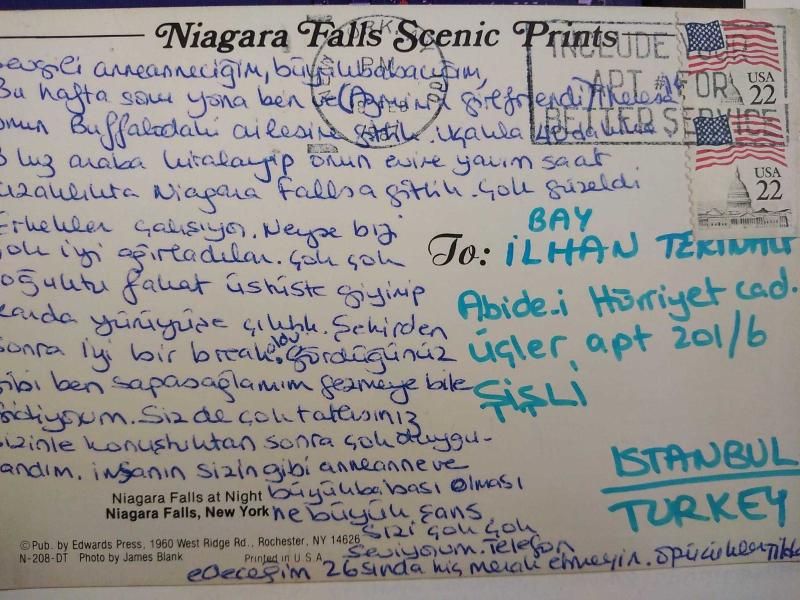 Niagara Falls Scenic Prints
INCLUDE YOUR
APT # FOR
BETTER SERVICE
USA
22
USA
22
anneanneciğim, büyükbabacığım,
Bu hafta sonu yona ben ve (Ayının girlfriendi)
onun Buffalodaki ailesine gittik. Uçakla
kız araba kiralayıp onun evine yarım saat
uzaklıkta Niagara Fallsa gittik. Çok güzeldi
Erkekler çalışıyor. Neyse bizi
çok iyi ağırladılar. Çok çok
soğuktu fakat üstüste giyinip
karda yürüyüşe çıktık. Şehirden
sonra iyi bir break oldu. Gördüğünüz
gibi ben sapasağlamım gezmeye bile
gidiyorum. Siz de çok tatlısınız
sizinle konuştuktan sonra çok duygu-
landım. insanın sizin gibi anneanne ve
büyükbabası olması
ne büyük şans
sizi çok çok
seviyorum. Telefon
edeceğim 26sında hiç merak etmeyin.
To:
BAY
İLHAN
Abide-i Hürriyet cad.
Üçler apt 201/6
ŞİŞLİ
ISTANBUL
TURKEY
Niagara Falls at Night
Niagara Falls, New York
©Pub. by Edwards Press, 1960 West Ridge Rd., Rochester, NY 14626
N-208-DT Photo by James Blank Printed in U.S.A.